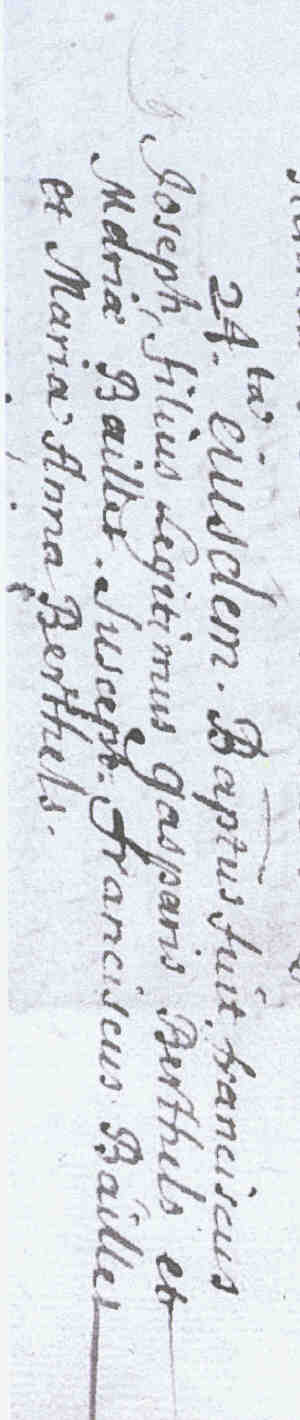 24.ta eiusdem. Baptus fuit franciscus
Joseph, filius Legitimus Gasparis Berthels et
Maria Baillet. Suscept. franciscus Baillet
et Maria Anna Berthels.